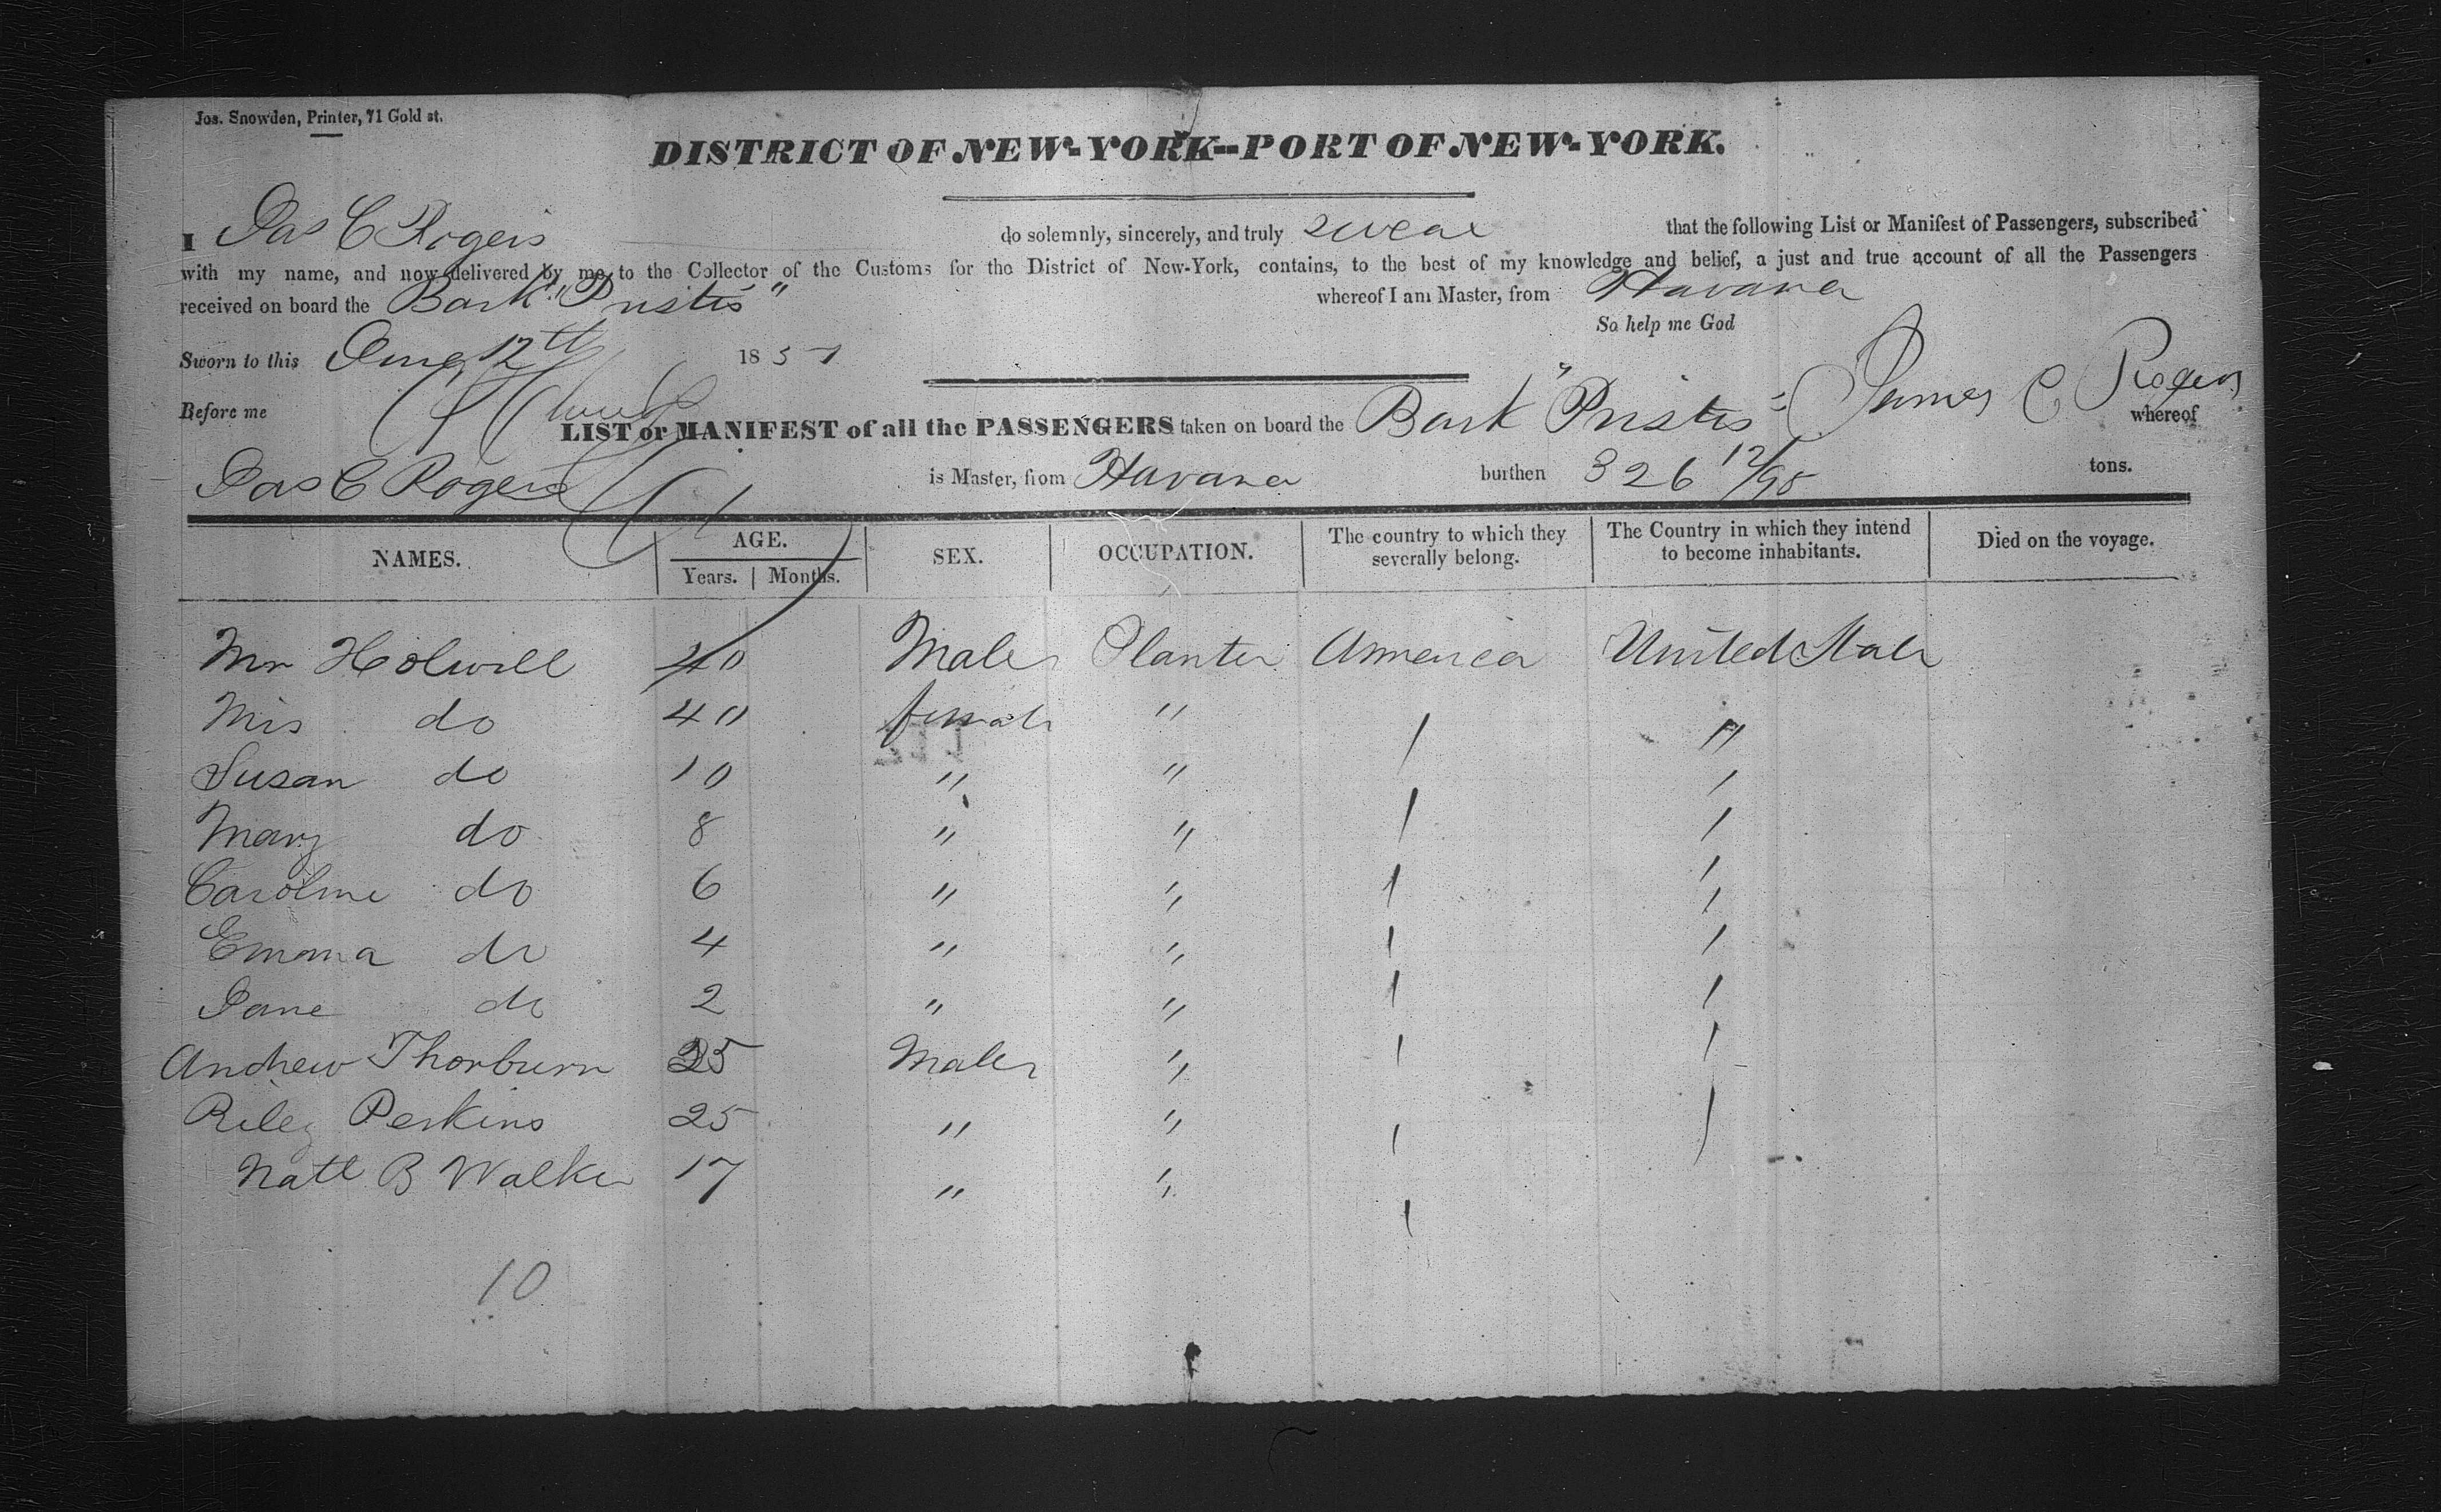 Jos. Snowden, Printer, 71 Gold st.
DISTRICT OF NEW-YORK--PORT OF NEW-YORK.
I Jas C Rogers do solemnly, sincerely, and truly swear that the following List or Manifest of Passengers, subscribed
with my name, and now delivered by me to the Collector of the Customs for the District of New-York, contains, to the best of my knowledge and belief, a just and true account of all the Passengers
received on board the Bark "Pristis" whereof I am Master, from Havana
So help me God
Sworn to this Aug 12th 1851
James C Rogers
Before me
LIST or MANIFEST of all the PASSENGERS taken on board the Bark "Pristis" whereof
Jas C Rogers is Master, from Havana burthen 326 12/95 tons.
NAMES. AGE. Years. Months. SEX. OCCUPATION. The country to which they severally belong. The Country in which they intend to become inhabitants. Died on the voyage.
Mr Holwill 40 Male Planter America United State
Mrs do 40 female " / "
Susan do 10 " " / /
Mary do 8 " " / /
Caroline do 6 " " / /
Emma do 4 " " / /
Jane do 2 " " / /
Andrew Thorburn 25 Male " / /
Riley Perkins 25 " " / /
Natl B Walker 17 " " /
10